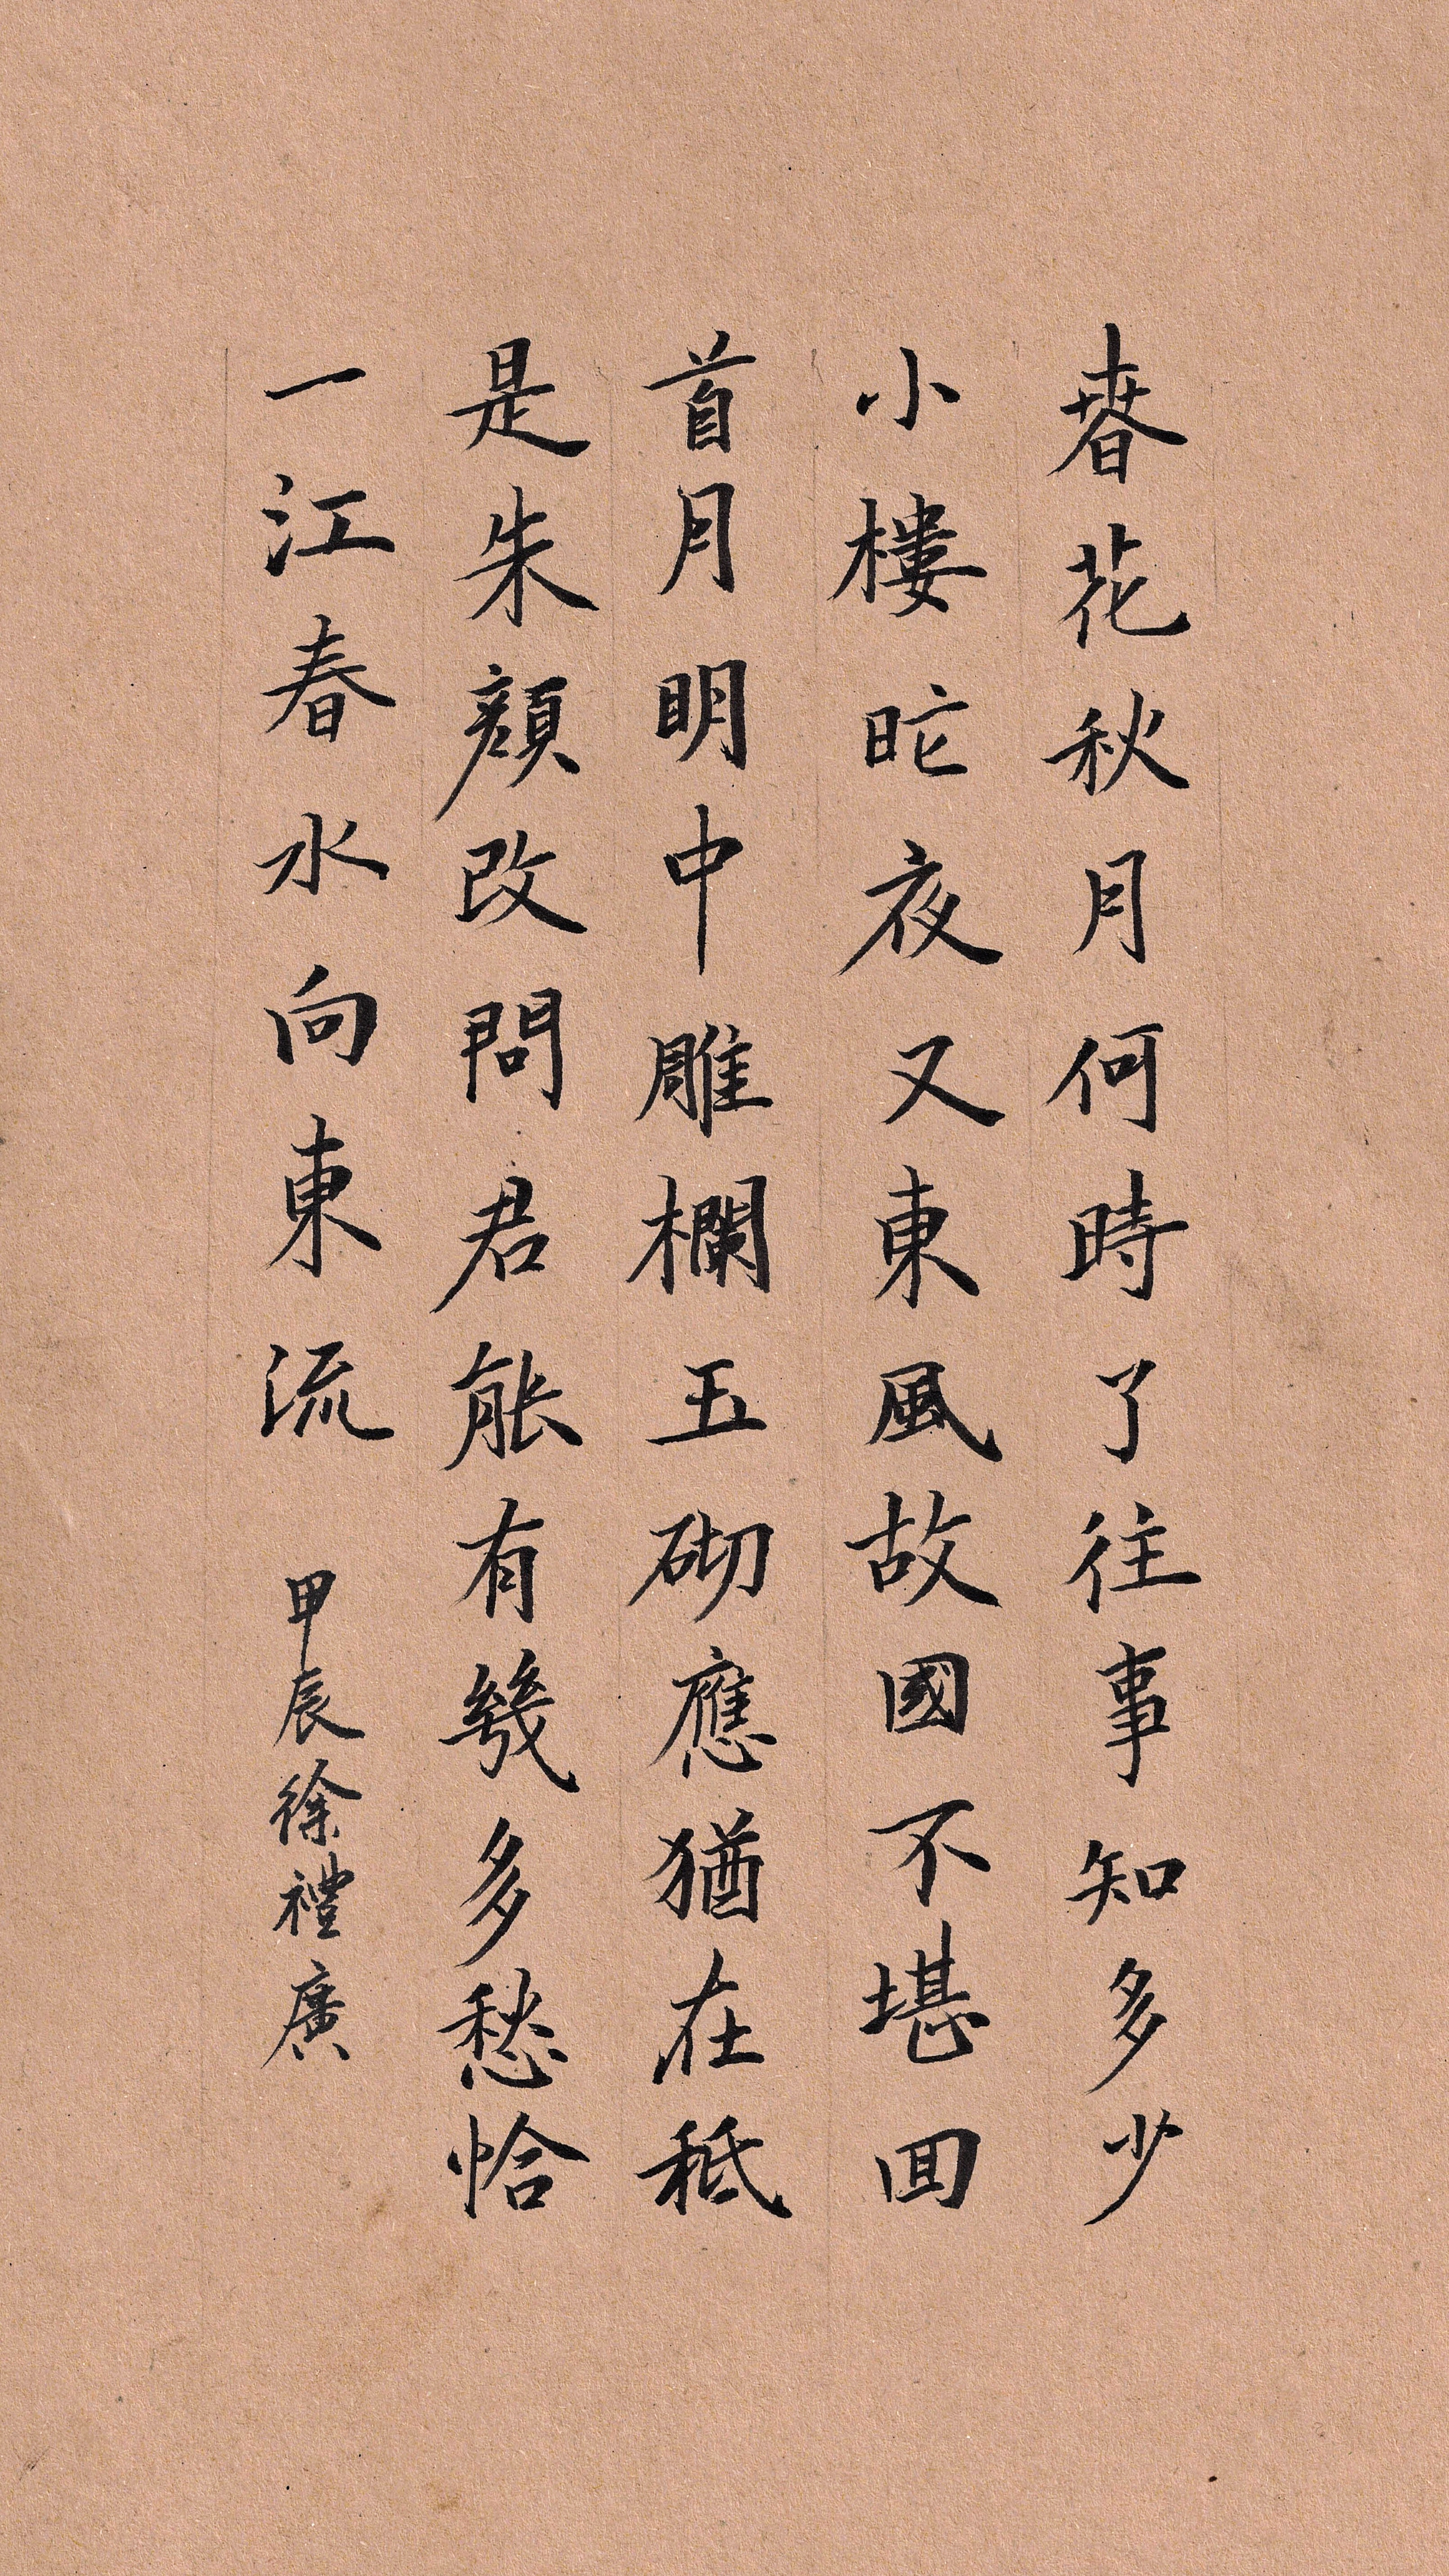 春花秋月何時了往事知多少
小樓昨夜又東風故國不堪回
首月明中雕欄玉砌應猶在秪
是朱顏改問君能有幾多愁恰
一江春水向東流 甲辰徐禮廣